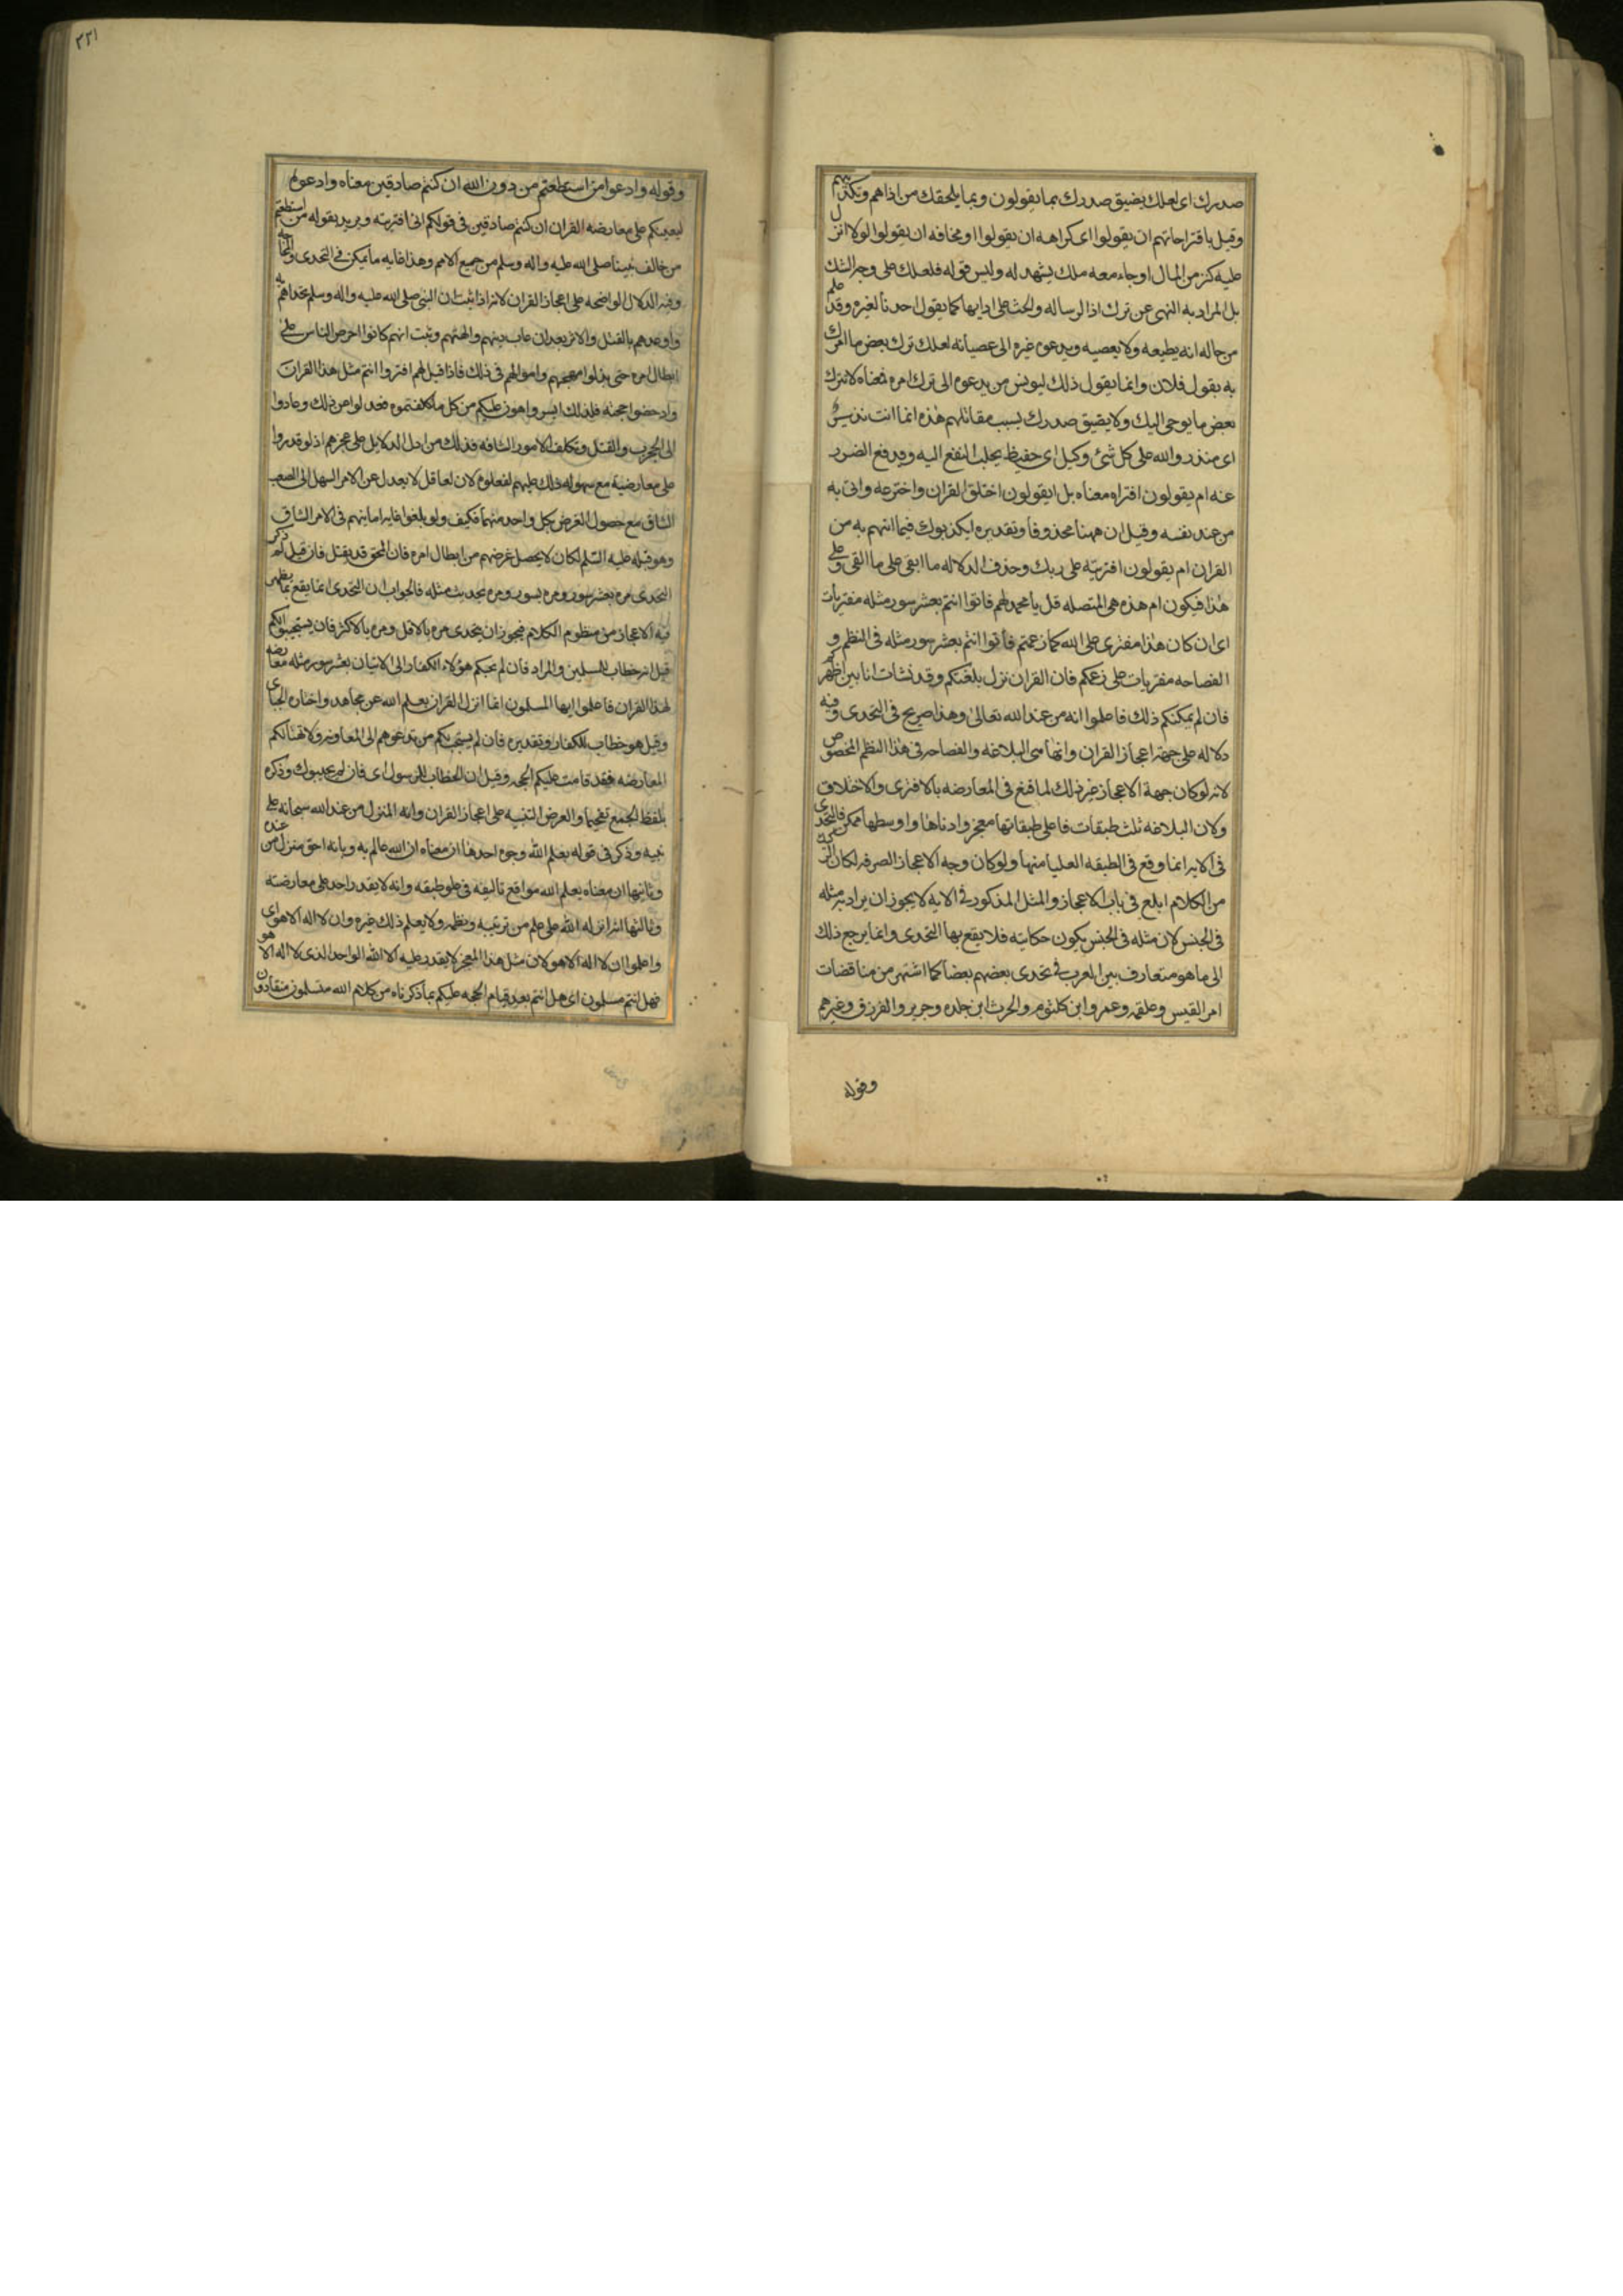 صدرك اى لعلك يضيق صدرك بما يقولون وبما يلحقك من اذاهم وتكذيبهم
وقيل باقتراحاتهم ان يقولوا اى كراهه ان يقولوا او مخافه ان يقولوا لولا انزل
عليه كنز من المال او جاء معه ملك يشهد له وليس قوله فلعلك على وجه الشك
بل المراد به النهى عن ترك ادا الرساله والحث على ادايها كما يقول احدنا لغيره وقد علم
من حاله انه يطيعه ولا يعصيه ويدعوه غيره الى عصيانه لعلك ترك بعض ما امرك
به يقول فلان وانما يقول ذلك ليويس من يدعوه الى ترك امره فمعناه لا تترك
بعض ما يوحى اليك ولا يضيق صدرك بسبب مقالتهم هذه انما انت نذير
اى منذر والله على كل شئ وكيل اى حفيظ يجلب النفع اليه ويدفع الضرر
عنه ام يقولون افتراه معناه بل ايقولون اختلق القران واخترعه واتى به
من عند نفسه وقيل ان ههنا محذوفا وتقديره ايكذبوك فيما اتهم به من
القران ام يقولون افتريته على ربك وحذف الدلاله ما ابقى على ما القى وعلى
هذا فيكون ام هذه هى المتصله قل يا محمد لهم فاتوا انتم بعشر سور مثله مفتريات
اى ان كان هذا مفترى على الله كما زعمتم فأتوا انتم بعشر سور مثله فى النظم و
الفصاحه مفتريات على زعمكم فان القران نزل بلغتكم وقد نشات انا بين اظهركم
فان لم يمكنكم ذلك فاعلموا انه من عند الله تعالى وهذا صريح فى التحدى وفيه
دلاله على جهة اعجاز القران وانها هى البلاغه والفصاحه فى هذا النظم المخصوص
لانه لو كان جهة الاعجاز غير ذلك لما قنع فى المعارضه بالافترى والاختلاق
ولان البلاغه ثلث طبقات فاعلى طبقاتها معجز وادناها واوسطها ممكن فالتحدى
فى الايه انما وقع فى الطبقه العليا منها ولو كان وجه الاعجاز الصرفه لكان الركيك
من الكلام ابلغ فى باب الاعجاز والمثل المذكور فى الاية لا يجوز ان يراد به مثله
فى الجنس لان مثله فى الجنس يكون حكايته فلا يقع بها التحدى وانما يرجع ذلك
الى ما هو متعارف بين العرب فى تحدى بعضهم بعضا كما اشتهر من مناقضات
امر القيس وعلقمه وعمرو ابن كلثوم والحرث ابن حلزه وجرير والفرزق وغيرهم
وقوله
٢٢١
وقوله وادعوا من استطعتم من دون الله ان كنتم صادقين معناه وادعوهم
ليعينكم على معارضه القران ان كنتم صادقين فى قولكم انى افتريته ويريد بقوله من استطعتم
من خالف نبينا صلى الله عليه واله وسلم من جميع الامم وهذا غايه ما يمكن فى التحدى والمحاجه
وفيه الدلال الواضحه على اعجاز القران لانه اذا ثبت ان النبى صلى الله عليه واله وسلم تحداهم به
واوعدهم بالقتل والاسر بعد ان عاب دينهم والهتهم وثبت انهم كانوا احرص الناس على
ابطال امره حتى بذلوا مهجهم واموالهم فى ذلك فاذا قيل لهم افتروا انتم مثل هذا القران
وادحضوا حجته فلذلك ايسر واهون عليكم من كل ما تكلفتموه فعدلوا عن ذلك وعادوا
الى الحرب والقتل وتكلف الامور الشاقه فذلك من ادل الدلايل على عجزهم اذ لو قدروا
على معارضته مع سهوله ذلك عليهم لفعلوه لان العاقل لا يعدل عن الامر السهل الى الصعب
الشاق مع حصول الغرض بكل واحد منهما فكيف ولو بلغوا غايه امانيهم فى الامر الشاق
وهو قتله عليه السلم لكان لا يحصل غرضهم من ابطال امره فان المحق قد يقتل فان قيل لم ذكر
التحدى مره بعشر سور ومره بسوره ومره بحديث مثله فالجواب ان التحدى انما يقع بما يظهر
فيه الاعجاز من منظوم الكلام فيجوز ان يتحدى مره بالاقل ومره بالاكثر فان يستجيبوا لكم
قيل انه خطاب للمسلمين والمراد فان لم يجبكم هؤلاء الكفار الى الاتيان بعشر سور مثله معارضه
لهذا القران فاعلموا ايها المسلمون انما انزل القران بعلم الله عن مجاهد واختاره الجباى
وقيل هو خطاب للكفار وتقديره فان لم يستجب لكم من تدعوهم الى المعاونه ولا تهيا لكم
المعارضه فقد قامت عليكم الحجه وقيل ان الخطاب للرسول اى فان لم يجيبوك وذكره
بلفظ الجمع تفخيما والغرض التنبيه على اعجاز القران وانه المنزل من عند الله سبحانه على
نبيه وذكر فى قوله بعلم الله وجوه احدها ان معناه ان الله عالم به وبانه احق منزل من عنده
وثانيها ان معناه بعلم الله مواقع تاليفه فى علو طبقه وانه لا يقدر احد على معارضته
وثالثها انه انزله الله على علم من ترتيبه ونظمه ولا يعلم ذلك غيره وان لا اله الا هو اى
واعلموا ان لا اله الا هو لان مثل هذا المعجز لا يقدر عليه الا الله الواحد الذى لا اله الا هو
فهل انتم مسلمون اى هل انتم بعد قيام الحجه عليكم بما ذكرناه من كلام الله مسلمون منقادون